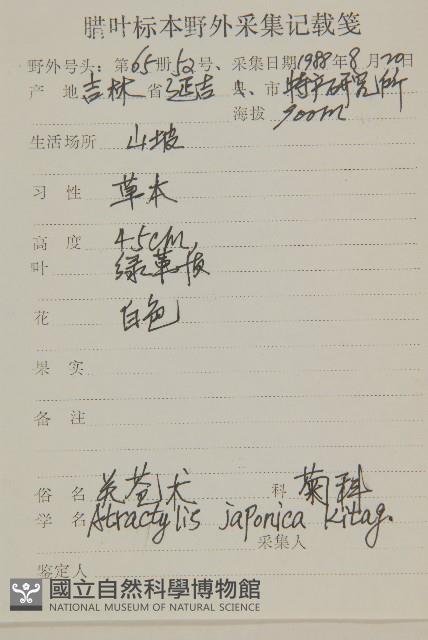 腊叶标本野外采集记载笺
野外号头：第65册52号、采集日期1988年8月20日
产 地 吉林省延吉县、市 特产研究所
海拔 700m
生活场所 山坡
习 性 草本
高 度 45cm
叶 绿革质
花 白色
果 实
备 注
俗 名 关苍术 科 菊科
学 名 Atractylis japonica Kitag.
采集人
鉴定人
國立自然科學博物館
NATIONAL MUSEUM OF NATURAL SCIENCE